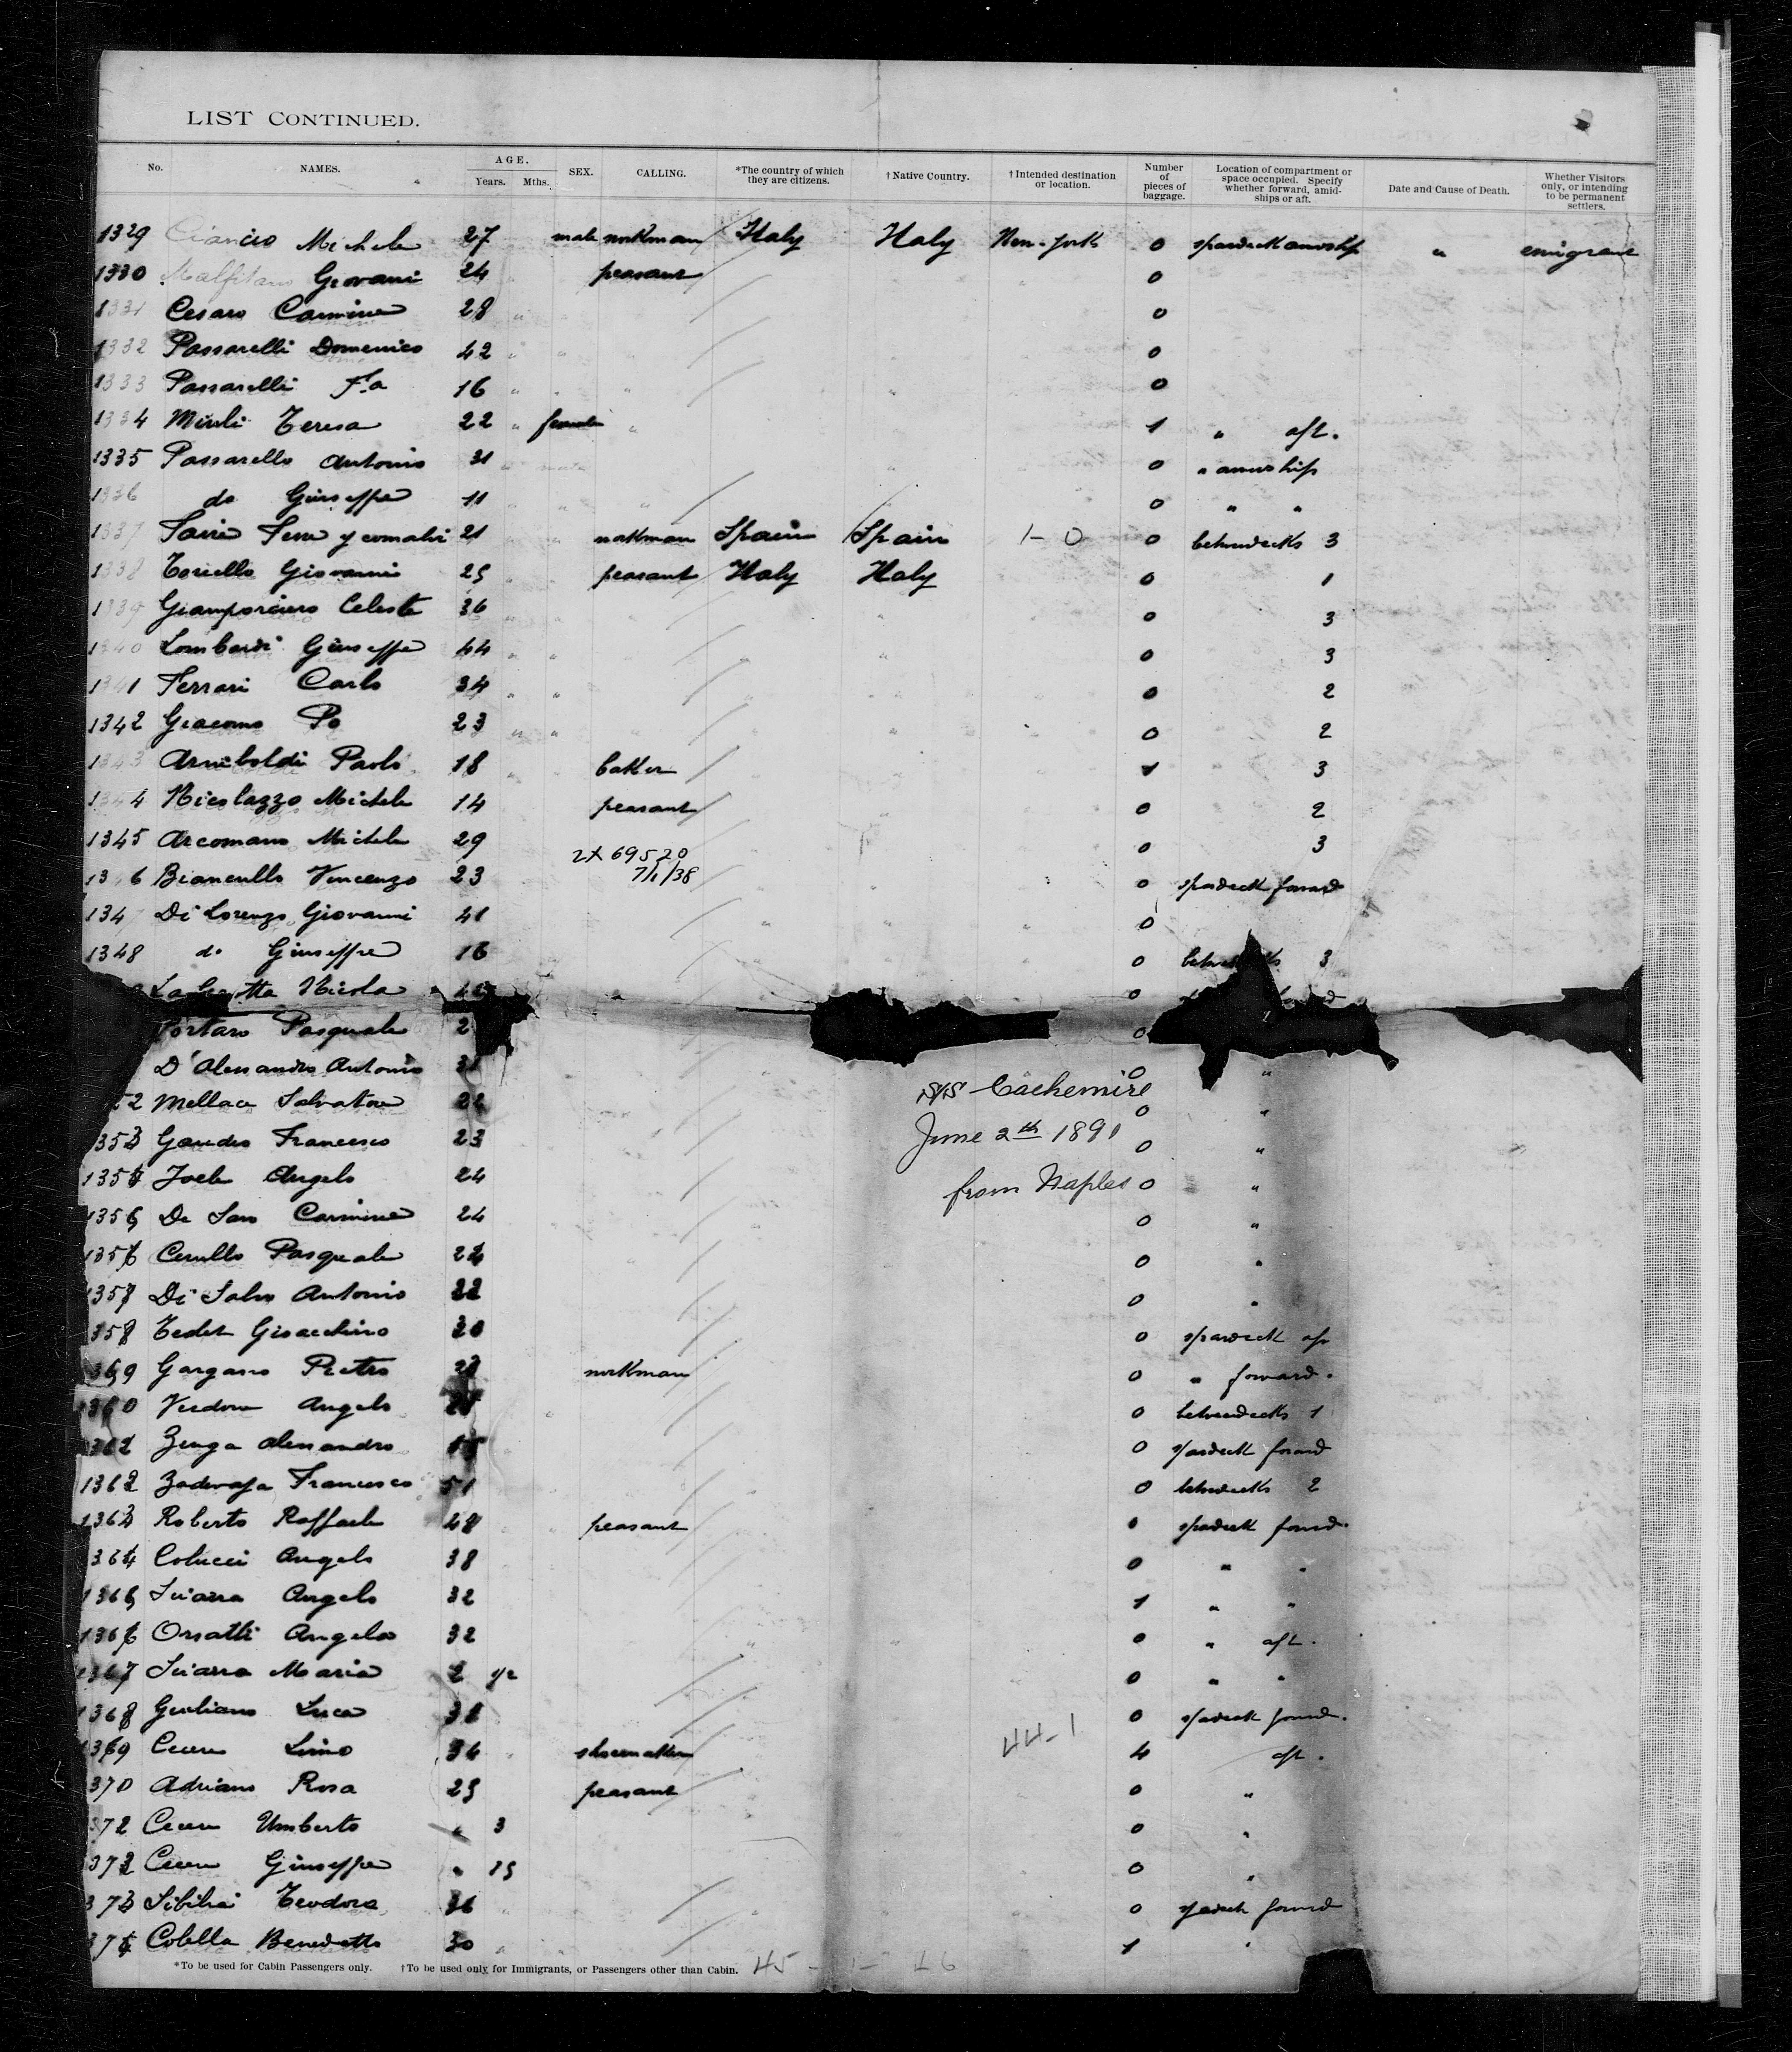 LIST CONTINUED.
No. NAMES. AGE. Years. Mths. SEX. CALLING. *The country of which they are citizens. †Native Country. †Intended destination or location. Number of pieces of baggage. Location of compartment or space occupied. Specify whether forward, amidships or aft. Date and Cause of Death. Whether Visitors only, or intending to be permanent settlers.
1329 Ciancio Michele 27 male workman Italy Italy New-York 0 spardeck amidship " emigrant
1330 Malfitano Giovanni 24 peasant 0
1331 Cesaro Carmine 28 " 0
1332 Passarelli Domenico 42 " " 0
1333 Passarelli Fco 16 " " " 0
1334 Teresa 22 " female " 1 " aft.
1335 Passarello Antonio 31 " male 0 " amidship
1336 do Giuseppe 11 " " " 0 " "
1337 21 workman Spain Spain 1-0 0 betweendecks 3
1338 Toriello Giovanni 25 peasant Italy Italy 0 1
1339 Celeste 36 0 3
1340 Lombardi Giuseppe 44 " " 0 3
1341 Ferrari Carlo 34 " " 0 2
1342 Giacomo Po 23 " " 0 2
1343 Arniboldi Paolo 18 baker 1 3
1344 Nicolazzo Michele 14 peasant 0 2
1345 Arcomano Michele 29 0 3
2X 69520
7/1/38
13 6 Biancullo Vincenzo 23 0 spardeck forward
134 Di Lorenzo Giovanni 41 0
1348 do Giuseppe 16 0 3
Nicola 0
Portaro Pasquale 2 0
D'Alessandro Antonio 31 0 "
S/S Cachemire
52 Mellace Salvatore 22 0 "
June 2th 1891
353 Francesco 23 0 "
1354 Joele Angelo 24 0 "
from Naples
1355 Carmine 24 0 "
1356 Cerullo Pasquale 24 0 "
1357 Di Salvo Antonio 22 0 "
358 Gioacchino 30 0 spardeck aft
359 Gargano Pietro workman 0 " forward.
360 Verdone Angelo 0 betweendecks 1
361 Zenga Alessandro 0 spardeck forward
1362 Francesco 51 0 betweendecks 2
1363 Roberto Raffaele 48 peasant 0 spardeck forward.
364 Colucci Angelo 38 0 " "
1365 Sciarra Angelo 32 1 " "
1366 Orsatti Angela 32 0 " aft.
367 Sciarra Maria 2 1/2 0 " "
1368 Giuliano Luca 0 spardeck forward.
44-1
1369 36 shoemaker 4 aft.
370 Adriano Rosa 25 peasant 0 "
372 Umberto " 3 0 "
372 Giuseppe " 0 "
373 Sibilia Teodora 36 0 spardeck forward
374 Colella Benedetto 30 1 "
*To be used for Cabin Passengers only. †To be used only for Immigrants, or Passengers other than Cabin. 45 - 1 - 46